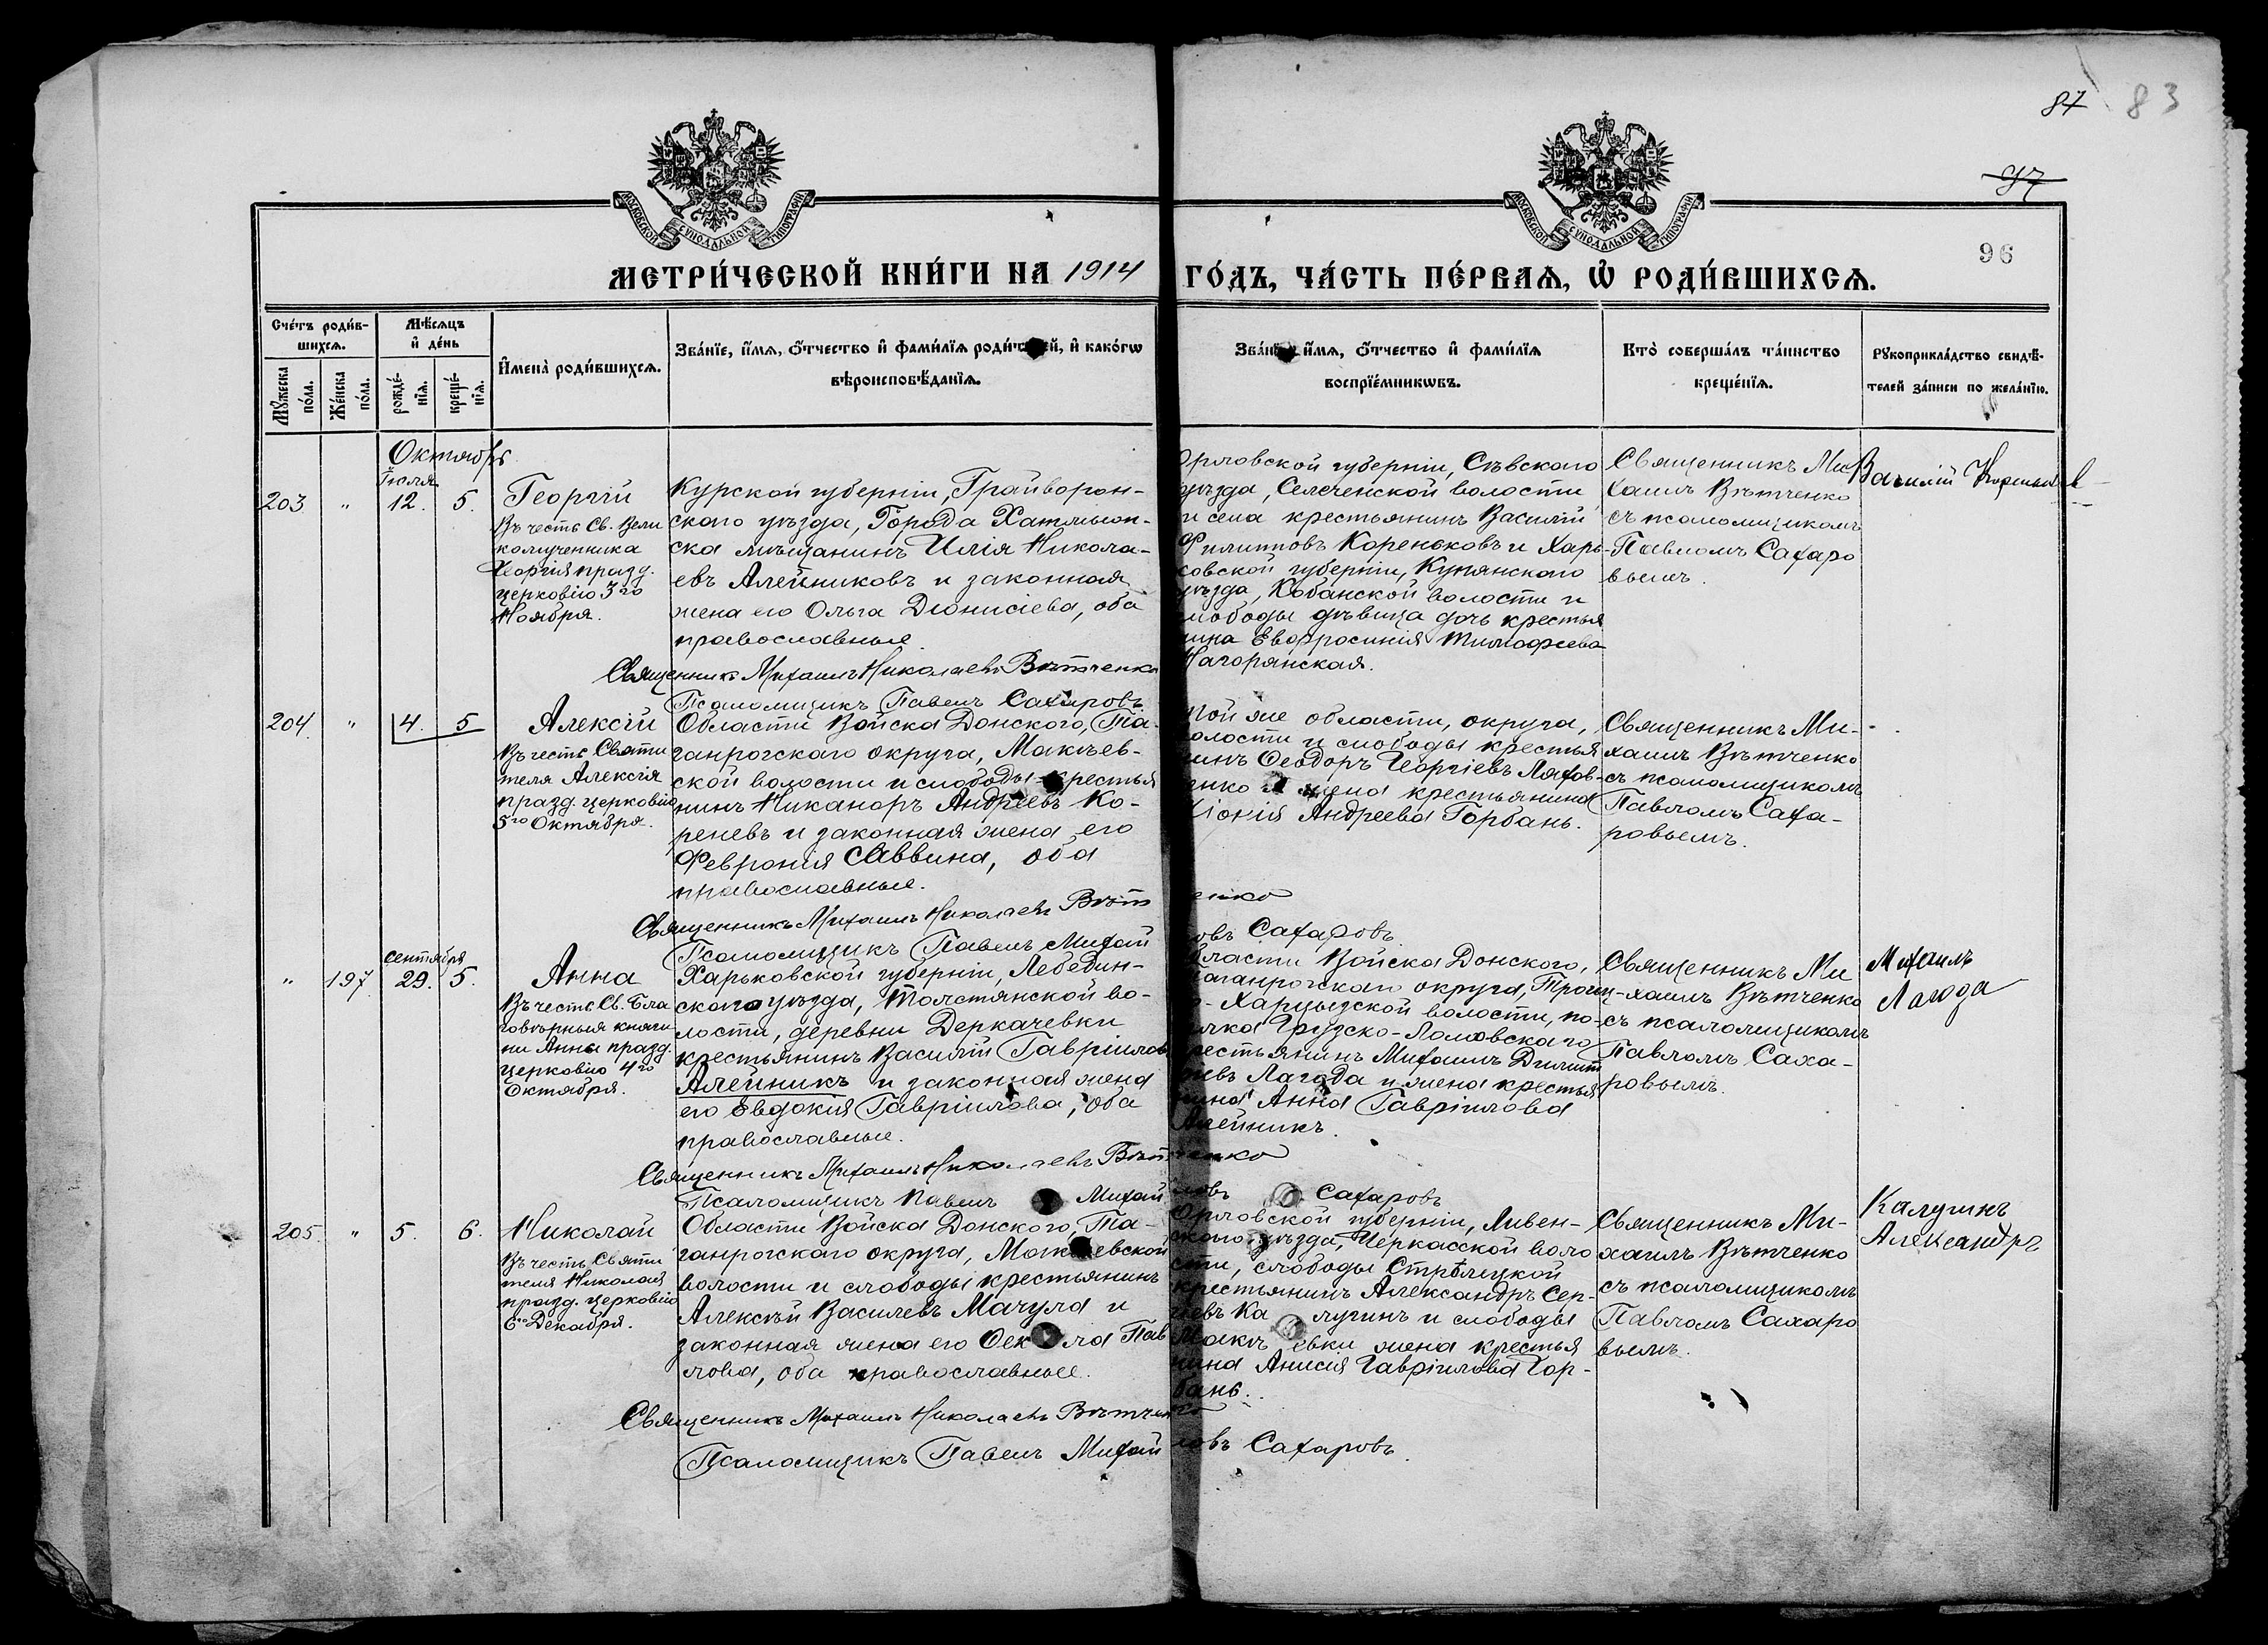 87 83
97
96
МОСКОВСКОЙ СУНОДАЛЬНОЙ ТИПОГРАФІИ
МОСКОВСКОЙ СУНОДАЛЬНОЙ ТИПОГРАФІИ
МЕТРИ́ЧЕСКОЙ КНИ́ГИ НА 1914 ГО́ДЪ, ЧА́СТЬ ПЕ́РВАѦ, Ѽ РОДИ́ВШИХСѦ.
Сче́тъ роди́в-
шихсѧ.
Мѣ́сѧцъ
и҆ де́нь
Мꙋ́жеска
по́ла.
Же́нска
по́ла.
рожде́-
нїѧ.
креще́-
нїѧ.
И҆мена̀ роди́вшихсѧ.
Зва́нїе, и҆́мѧ, ѻ҆́тчество и҆ фами́лїѧ роди́телей, и҆ како́гѡ
вѣроисповѣ́данїѧ.
Зва́нїе, и҆́мѧ, ѻ҆́тчество и҆ фами́лїѧ
воспрїе́мникѡвъ.
Кто̀ соверша́лъ та́инство
креще́нїѧ.
Рꙋкоприкла́дство свидѣ́-
телей за́писи по жела́нїю.
Октябрь
Іюля
203 " 12. 5. Георгій
Въ честь Св. Вели
комученника
Георгія празд.
церковію 3го
Ноября.
Курской губерніи, Грайворон-
скаго уѣзда, Города Хатмыж-
ска мѣщанинъ Илія Никола-
евъ Алейниковъ и законная
жена его Ольга Діонисіева, оба
православные.
Орловской губерніи, Сѣвскаго
уѣзда, Селеченской волости
и села крестьянинъ Василій
Филипповъ Кореньковъ и Харь-
ковской губерніи, Купянскаго
уѣзда, Кабанской волости и
слободы дѣвица дочь крестья
нина Евфросинія Тимофеева
Нагорянская.
Священникъ Ми
хаилъ Вѣтченко
съ псаломщикомъ
Павломъ Сахаро
вымъ.
Василій
Священникъ Михаилъ Николаевъ Вѣтченко
Псаломщикъ Павелъ Сахаровъ
204. " 4. 5 Алексій
Въ честь Святи
теля Алексія
празд. церковію
5го Октября.
Области Войска Донского, Та-
ганрогскаго округа, Макѣев-
ской волости и слободы крестья
нинъ Никаноръ Андреевъ Ко-
реневъ и законная жена его
Феврония Саввина, оба
православные.
Той же области, округа,
волости и слободы крестья
нинъ Ѳеодоръ Георгіевъ Ляхов-
енко и жена крестьянина
Андреева Горбань.
Священникъ Ми-
хаилъ Вѣтченко
съ псаломщикомъ
Павломъ Саха-
ровымъ.
Священникъ Михаилъ Николаевъ Вѣтченко
Псаломщикъ Павелъ Михайловъ Сахаровъ
сентября
" 197. 29. 5. Анна
Въ честь Св. Бла
говѣрныя княги
ни Анны празд.
церковію 4го
Октября.
Харьковской губерніи, Лебедин-
скаго уѣзда, Толстянской во-
лости, деревни Деркачевки
крестьянинъ Василій Гавріиловъ
Алейникъ и законная жена
его Евдокія Гавріилова, оба
православные.
Области Войска Донского,
Таганрогскаго округа, Троиц-
ко-Харцызской волости, по-
селка Грузско-Ломовскаго
крестьянинъ Михаилъ Димит
ріевъ Лагода и жена крестья
нина Анна Гавріилова
Алейникъ.
Священникъ Ми
хаилъ Вѣтченко
съ псаломщикомъ
Павломъ Саха-
ровымъ.
Михаилъ
Лагода
Священникъ Михаилъ Николаевъ Вѣтченко
Псаломщикъ Павелъ Михайловъ Сахаровъ
205. " 5. 6. Николай
Въ честь Святи
теля Николая
празд. церковію
6го Декабря.
Области Войска Донского, Та-
ганрогскаго округа, Макѣевской
волости и слободы крестьянинъ
Алексѣй Василевъ Мачула и
законная жена его Ѳекла Пав
лова, оба православные.
Орловской губерніи, Ливен-
скаго уѣзда, Черкасской воло
сти, слободы Стрѣлецкой
крестьянинъ Александръ Сер-
гѣевъ Калугинъ и слободы
Макѣевки жена крестья
нина Анисия Гавріилова Гор-
бань.
Священникъ Ми-
хаилъ Вѣтченко
съ псаломщикомъ
Павломъ Сахаро
вымъ.
Калугинъ
Александръ
Священникъ Михаилъ Николаевъ Вѣтченко
Псаломщикъ Павелъ Михайловъ Сахаровъ